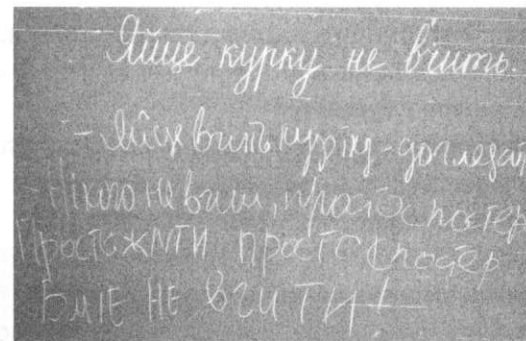 Яйце курку не вчить.
- Яйце вчить курку - доглядат
- Нікого не вчи, просто спостер
Простежити просто спостер
вміє не вчити!